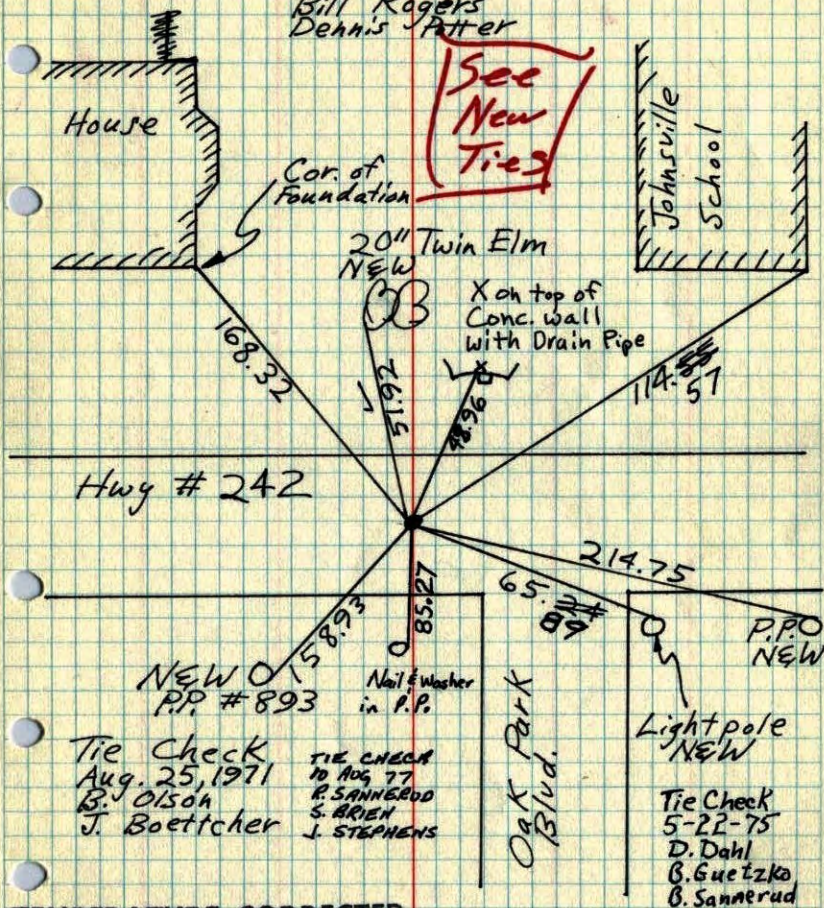 Bill Rogers
Dennis Potter
See
New
Ties
House
Johnsville
School
Cor. of
Foundation
20" Twin Elm
N&W
X on top of
Conc. wall
with Drain Pipe
168.32
51.92
48.96
114.55
57
Hwy # 242
214.75
65.
89
158.93
85.27
N&W
P.P. # 893
Nail & Washer
in P.P.
P.P.
N&W
Lightpole
N&W
Oak Park
Blvd.
Tie Check
Aug. 25, 1971
B. Olson
J. Boettcher
TIE CHECK
10 AUG 77
R. SANNERUD
S. BRIEN
J. STEPHENS
Tie Check
5-22-75
D. Dahl
B. Guetzko
B. Sannerud